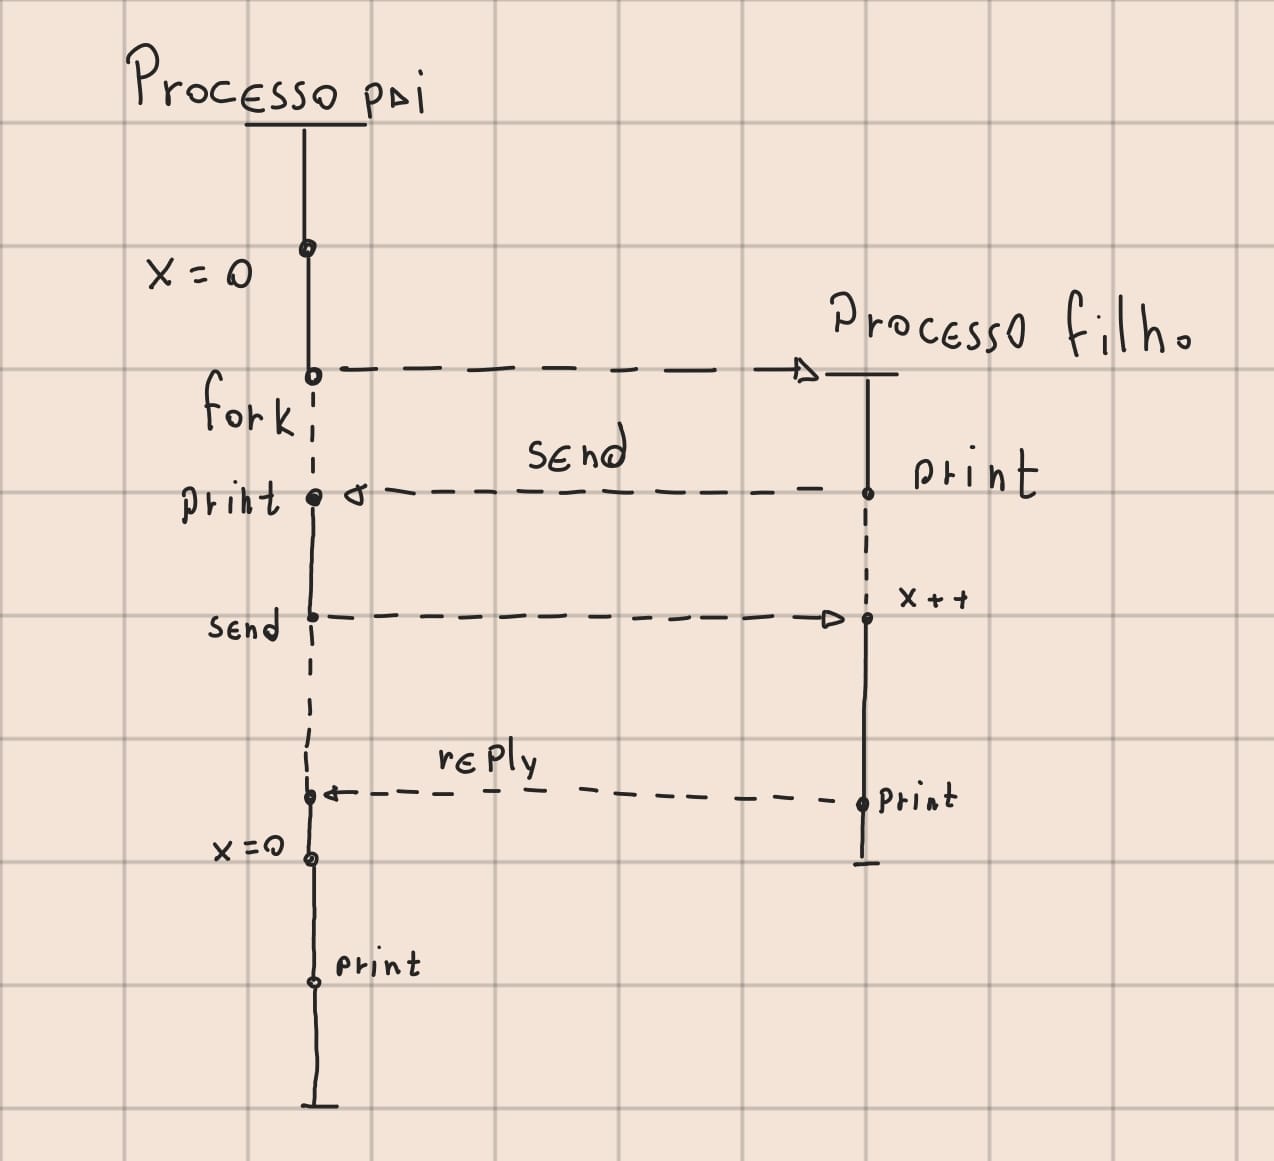 Processo pai
x = 0
Processo filho
fork
send
print
print
x++
send
reply
print
x=0
print